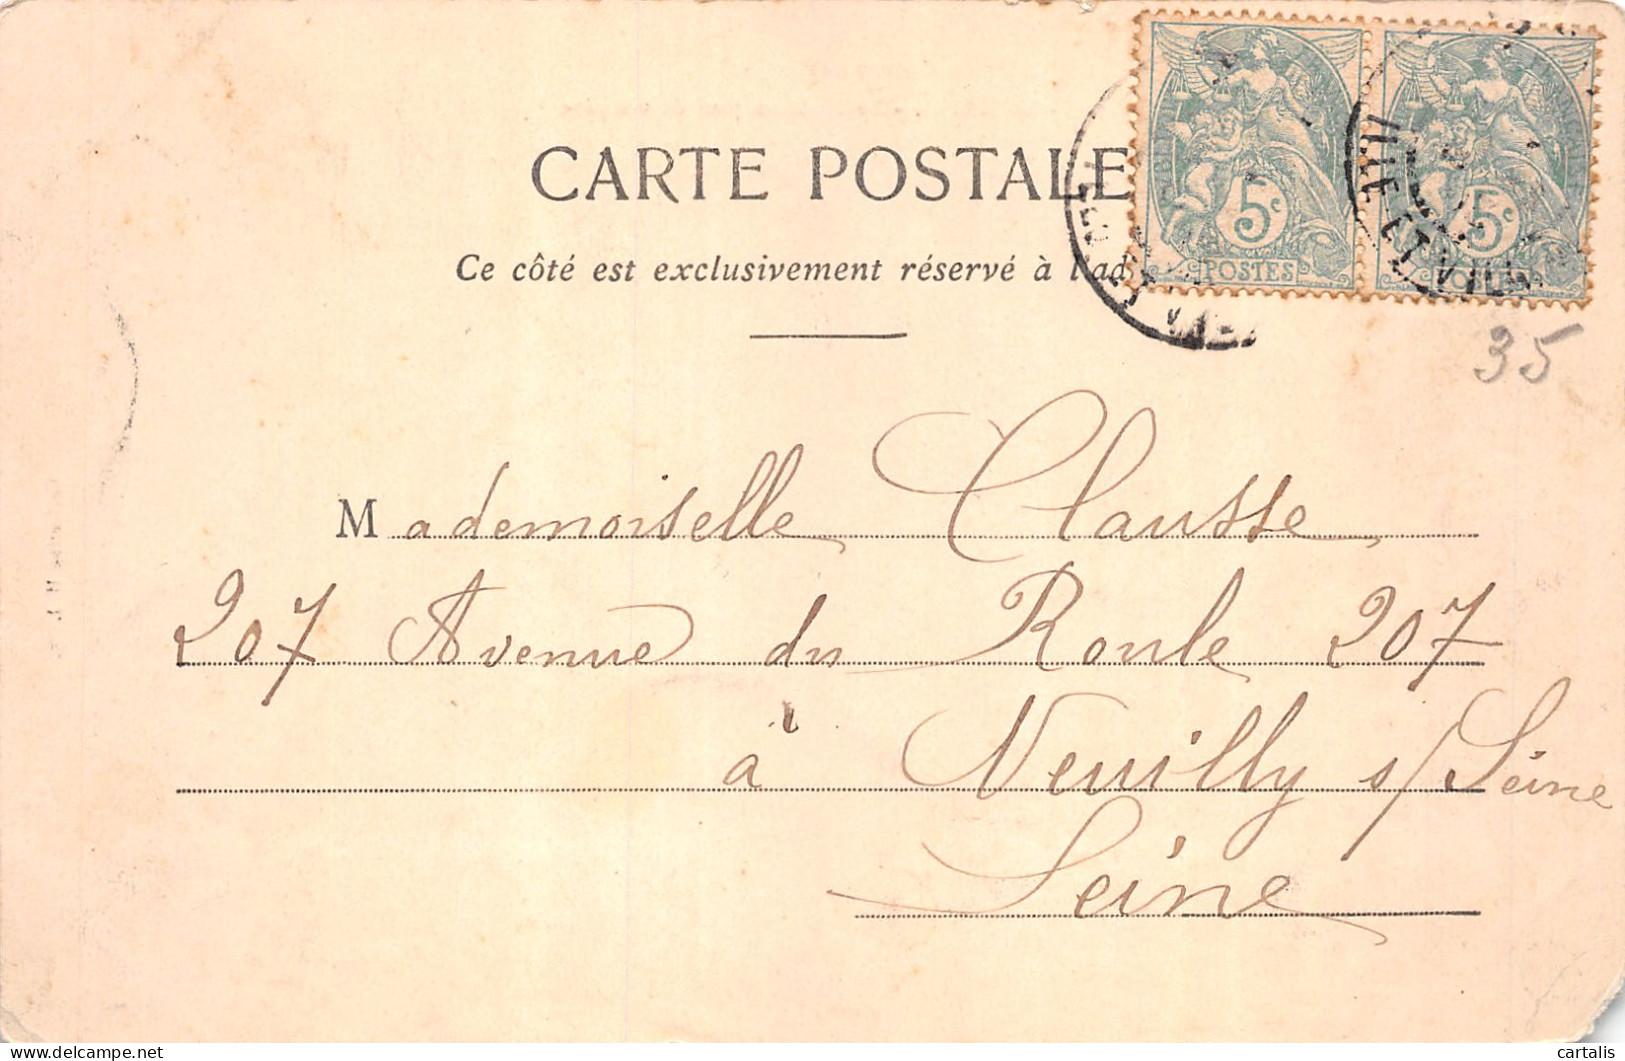 CARTE POSTALE
Ce côté est exclusivement réservé à l'ad
5c 5c
POSTES
ILLE ET VIL
35
Mademoiselle Clausse
207 Avenue du Roule 207
à Neuilly s/Seine
Seine
delcampe.net
cartalis